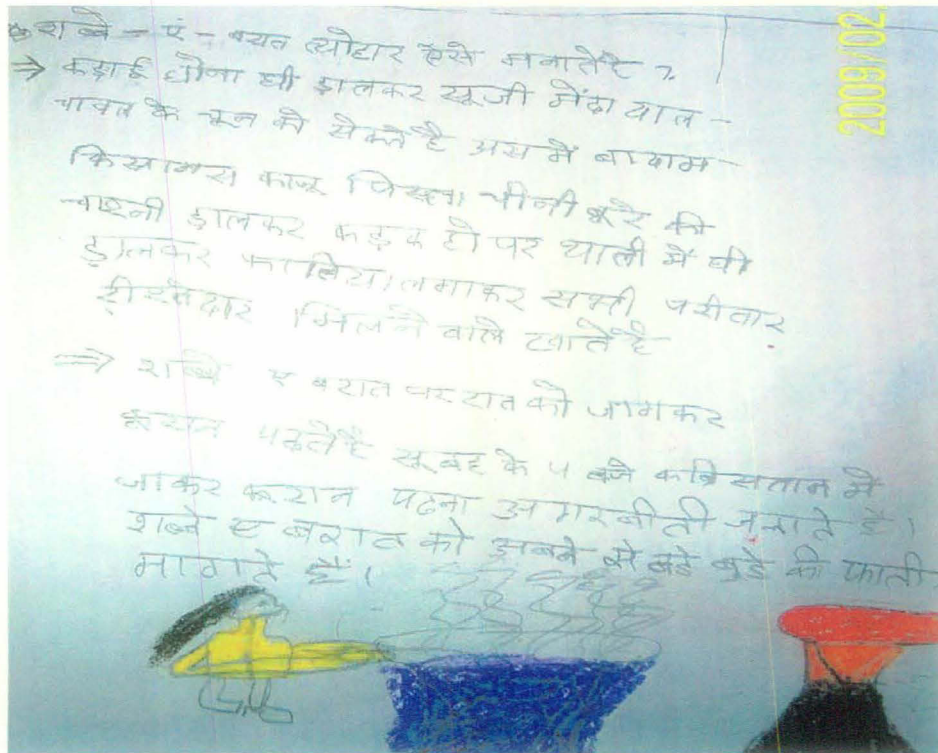 शब्बे - ए - बरात त्योहार कैसे मनाते है ?
⇒ कढ़ाई धोना घी डालकर सूजी मेंदा दाल -
चावल के चून को सेकते है उस में बादाम
किसमिस काजू पिस्ता चीनी बूरे की
चाश्नी डालकर कड़क हो पर थाली में घी
डालकर लगाकर सभी परीवार
रीश्तेदार मिलने वाले खाते है
⇒ शब्बे ए बरात पर रात को जागकर
कुरान पढ़ते है सूबह के 4 बजे कब्रिसतान में
जाकर कुरान पढना अगरबीती जलाते है।
शब्बे ए बरात को अपने से बडे बुडे की
मागते हैं।
2009/02